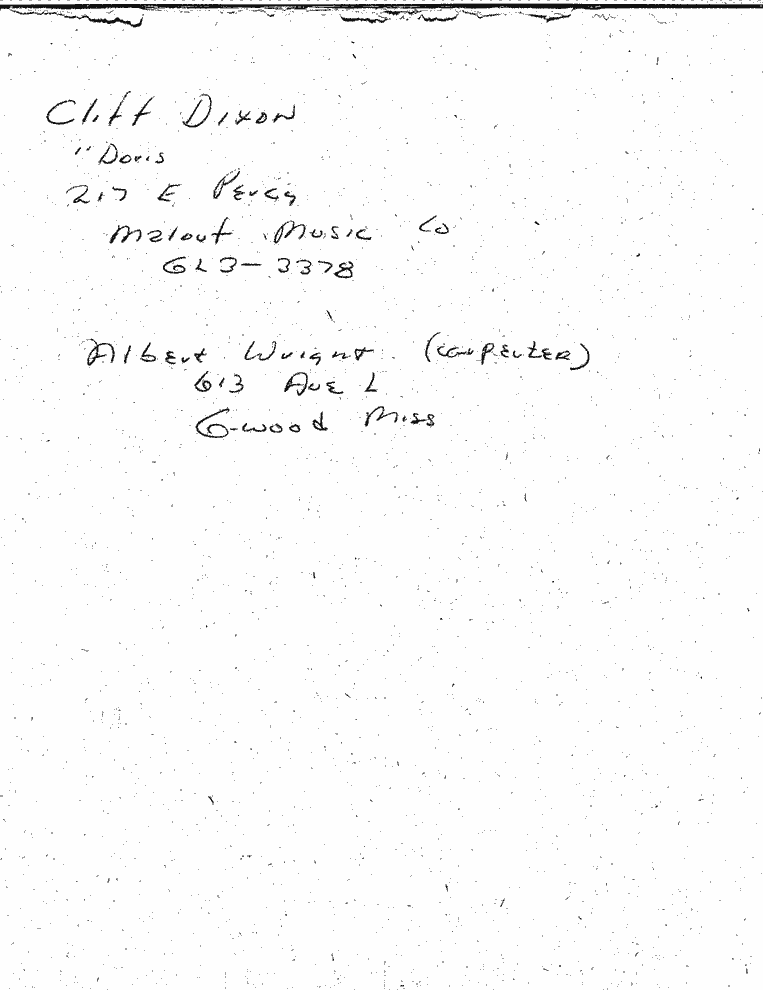 Cliff Dixon
" Doris
217 E Percy
Malouf Music Co
613-3378
Albert Wright (carpenter)
613 Ave L
G-wood Miss